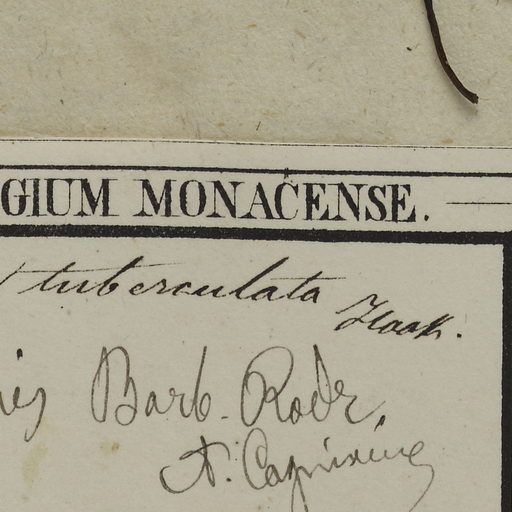 GIUM MONACENSE.
tuberculata Hook.
Barb. Rodr.
A. Cogniaux